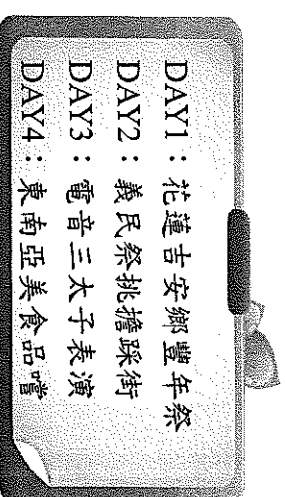 DAY1：花蓮吉安鄉豐年祭
DAY2：義民祭挑擔踩街
DAY3：電音三太子表演
DAY4：東南亞美食品嚐